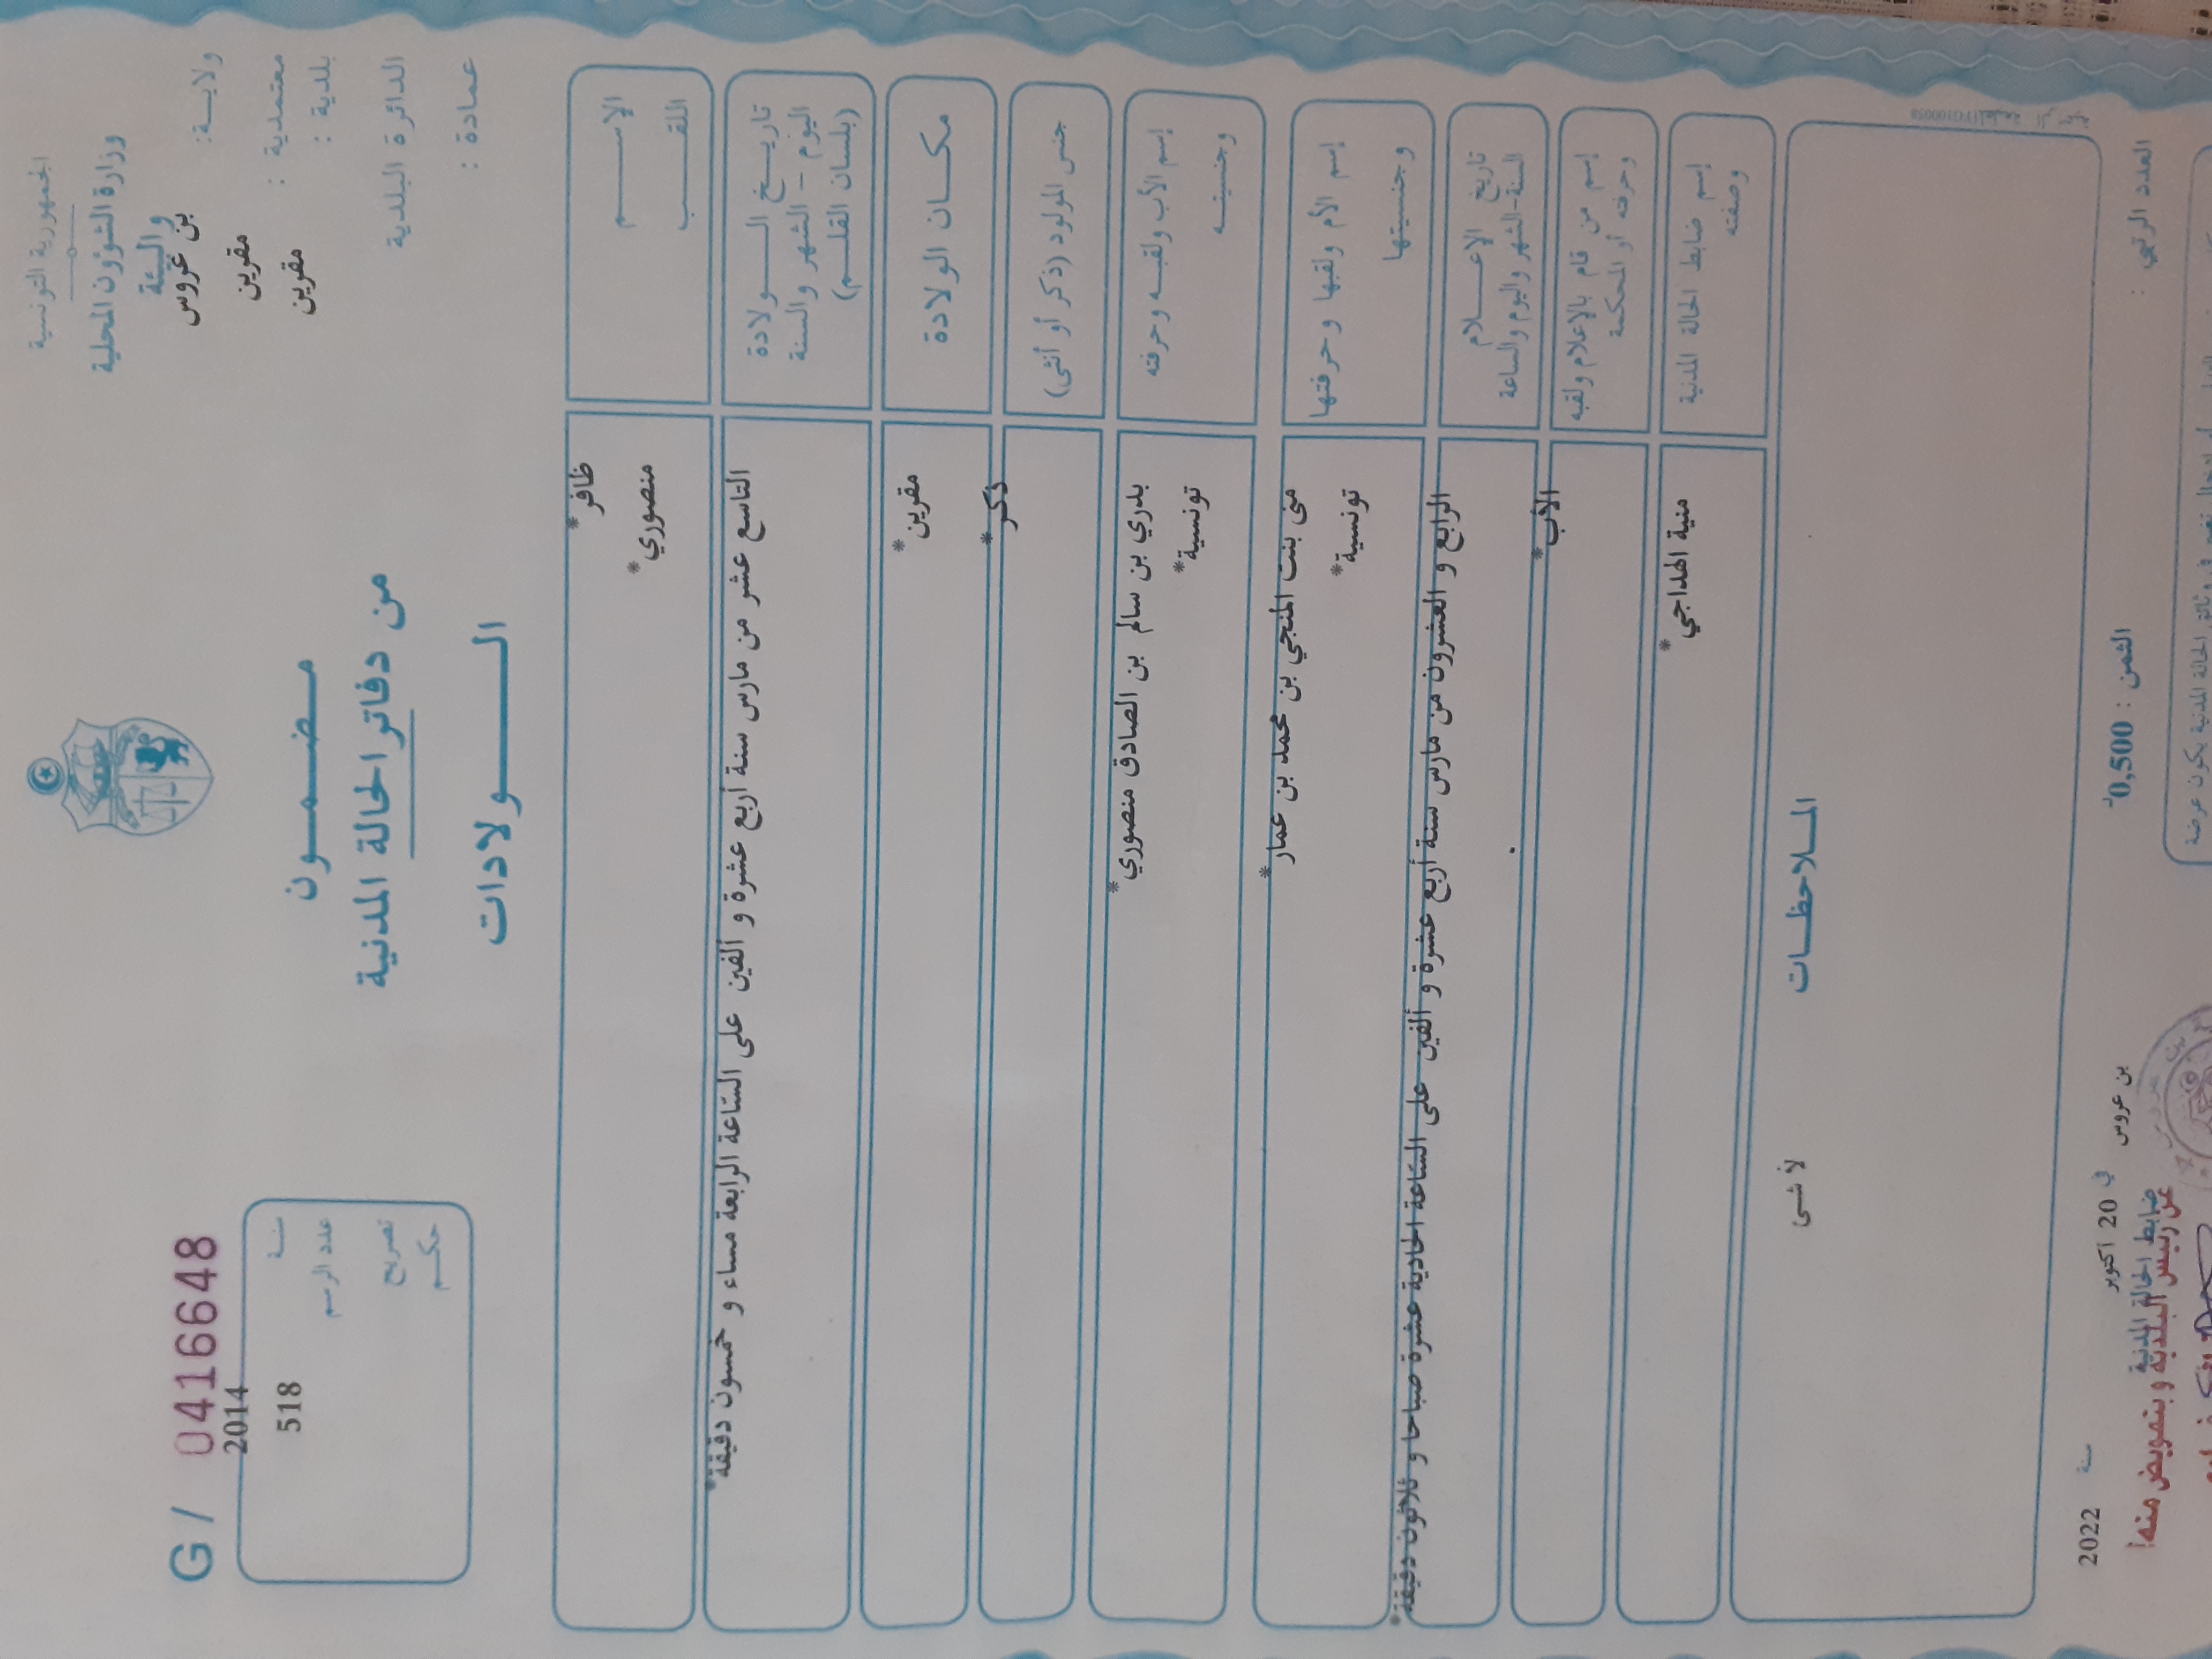 الجمهورية التونسية
وزارة الشؤون المحلية
والبيئة
ولايـــة: بن عروس
معتمدية : مقرين
بلدية : مقرين
الدائرة البلدية
عمادة :
G / 0416648
سنة 2014
عدد الرسم 518
تصريح
حكم
مضمــون
من دفاتر الحالة المدنية
الــولادات
الإســـم ظافر*
اللقـــب منصوري*
تاريــخ الـــولادة
اليوم - الشهر والسنة
(بلسان القلــم)
التاسع عشر من مارس سنة أربع عشرة و ألفين على السّاعة الرابعة مساء و خمسون دقيقة*
مكــان الولادة مقرين*
جنس المولود (ذكر أو أنثى) ذكر*
إسم الأب ولقبــه وحرفته بدري بن سالم بن الصادق منصوري*
وجنسيتــه تونسية*
إسم الأم ولقبها وحرفتها منى بنت المنجي بن محمد بن عمار*
وجنسيتها تونسية*
تاريخ الإعـــلام
السنة-الشهر واليوم والساعة
الرابع و العشرون من مارس سنة أربع عشرة و ألفين على السّاعة الحادية عشرة صباحا و ثلاثون دقيقة*
إسم من قام بالإعلام ولقبه
وحرفته أو المحكمة
الأب*
إسم ضابط الحالة المدنية
وصفته
منية الهداجي*
المــلاحظــات
لا شئ
العدد الرتبي :
الثمن : 0,500د
بن عروس في 20 أكتوبر سنة 2022
ضابط الحالة المدنية
عن رئيس البلدية و بتفويض منه